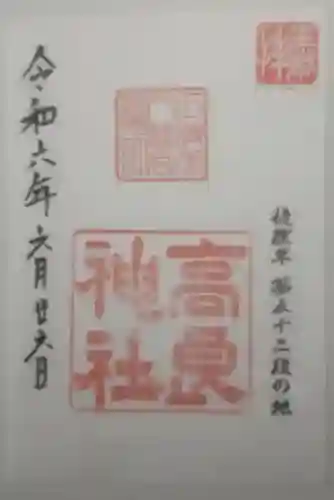 奉拝
徒然草 第五十二段の地
高良
神社
令和六年六月廿六日